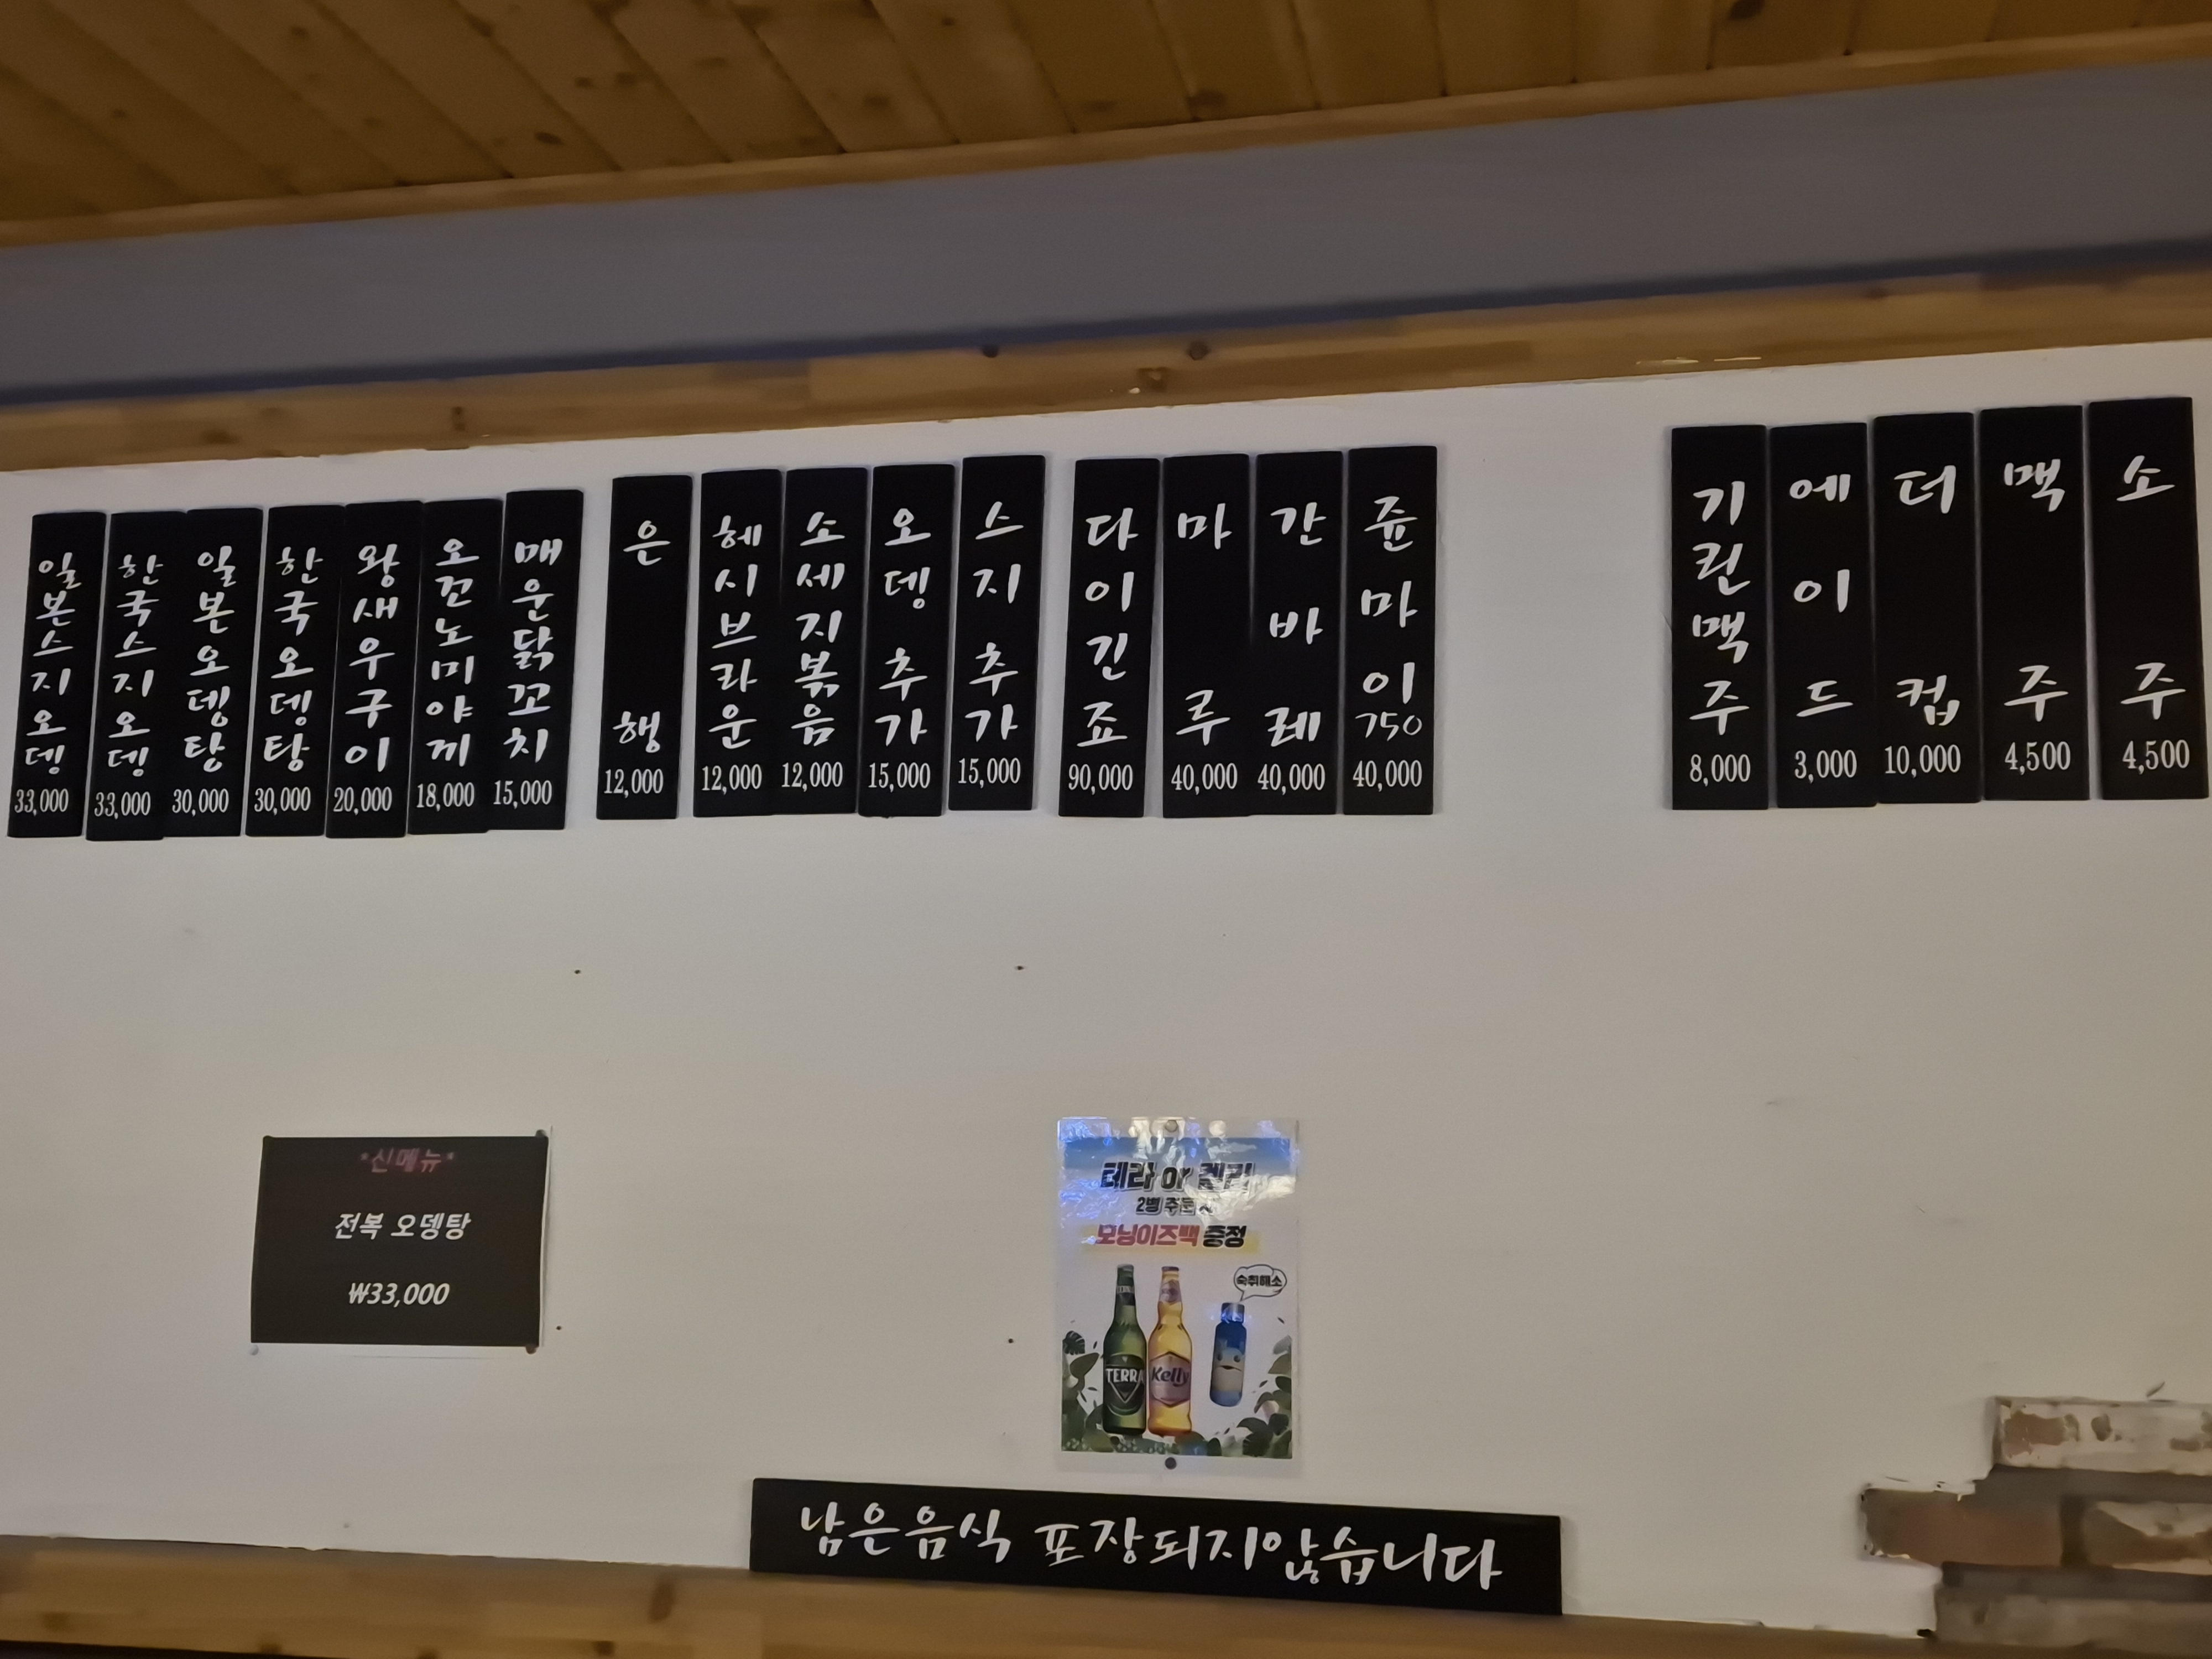 일본스지오뎅
33,000
한국스지오뎅
33,000
일본오뎅탕
30,000
한국오뎅탕
30,000
왕새우구이
20,000
오꼬노미야끼
18,000
매운닭꼬치
15,000
은행
12,000
헤시브라운
12,000
소세지볶음
12,000
오뎅추가
15,000
스지추가
15,000
다이긴죠
90,000
마루
40,000
간바레
40,000
쥰마이
750
40,000
기린맥주
8,000
에이드
3,000
더컵
10,000
맥주
4,500
소주
4,500
*신메뉴*
전복 오뎅탕
₩33,000
테라 or 켈리
2병 주문 시
모닝이즈백 증정
숙취해소
TERRA
Kelly
남은음식 포장되지않습니다